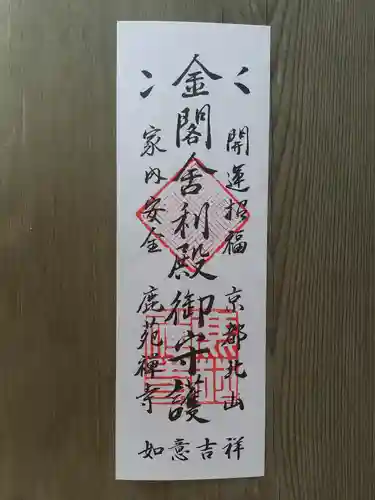 金閣舎利殿御守護
開運招福 京都北山
家内安全 鹿苑禅寺
如意吉祥